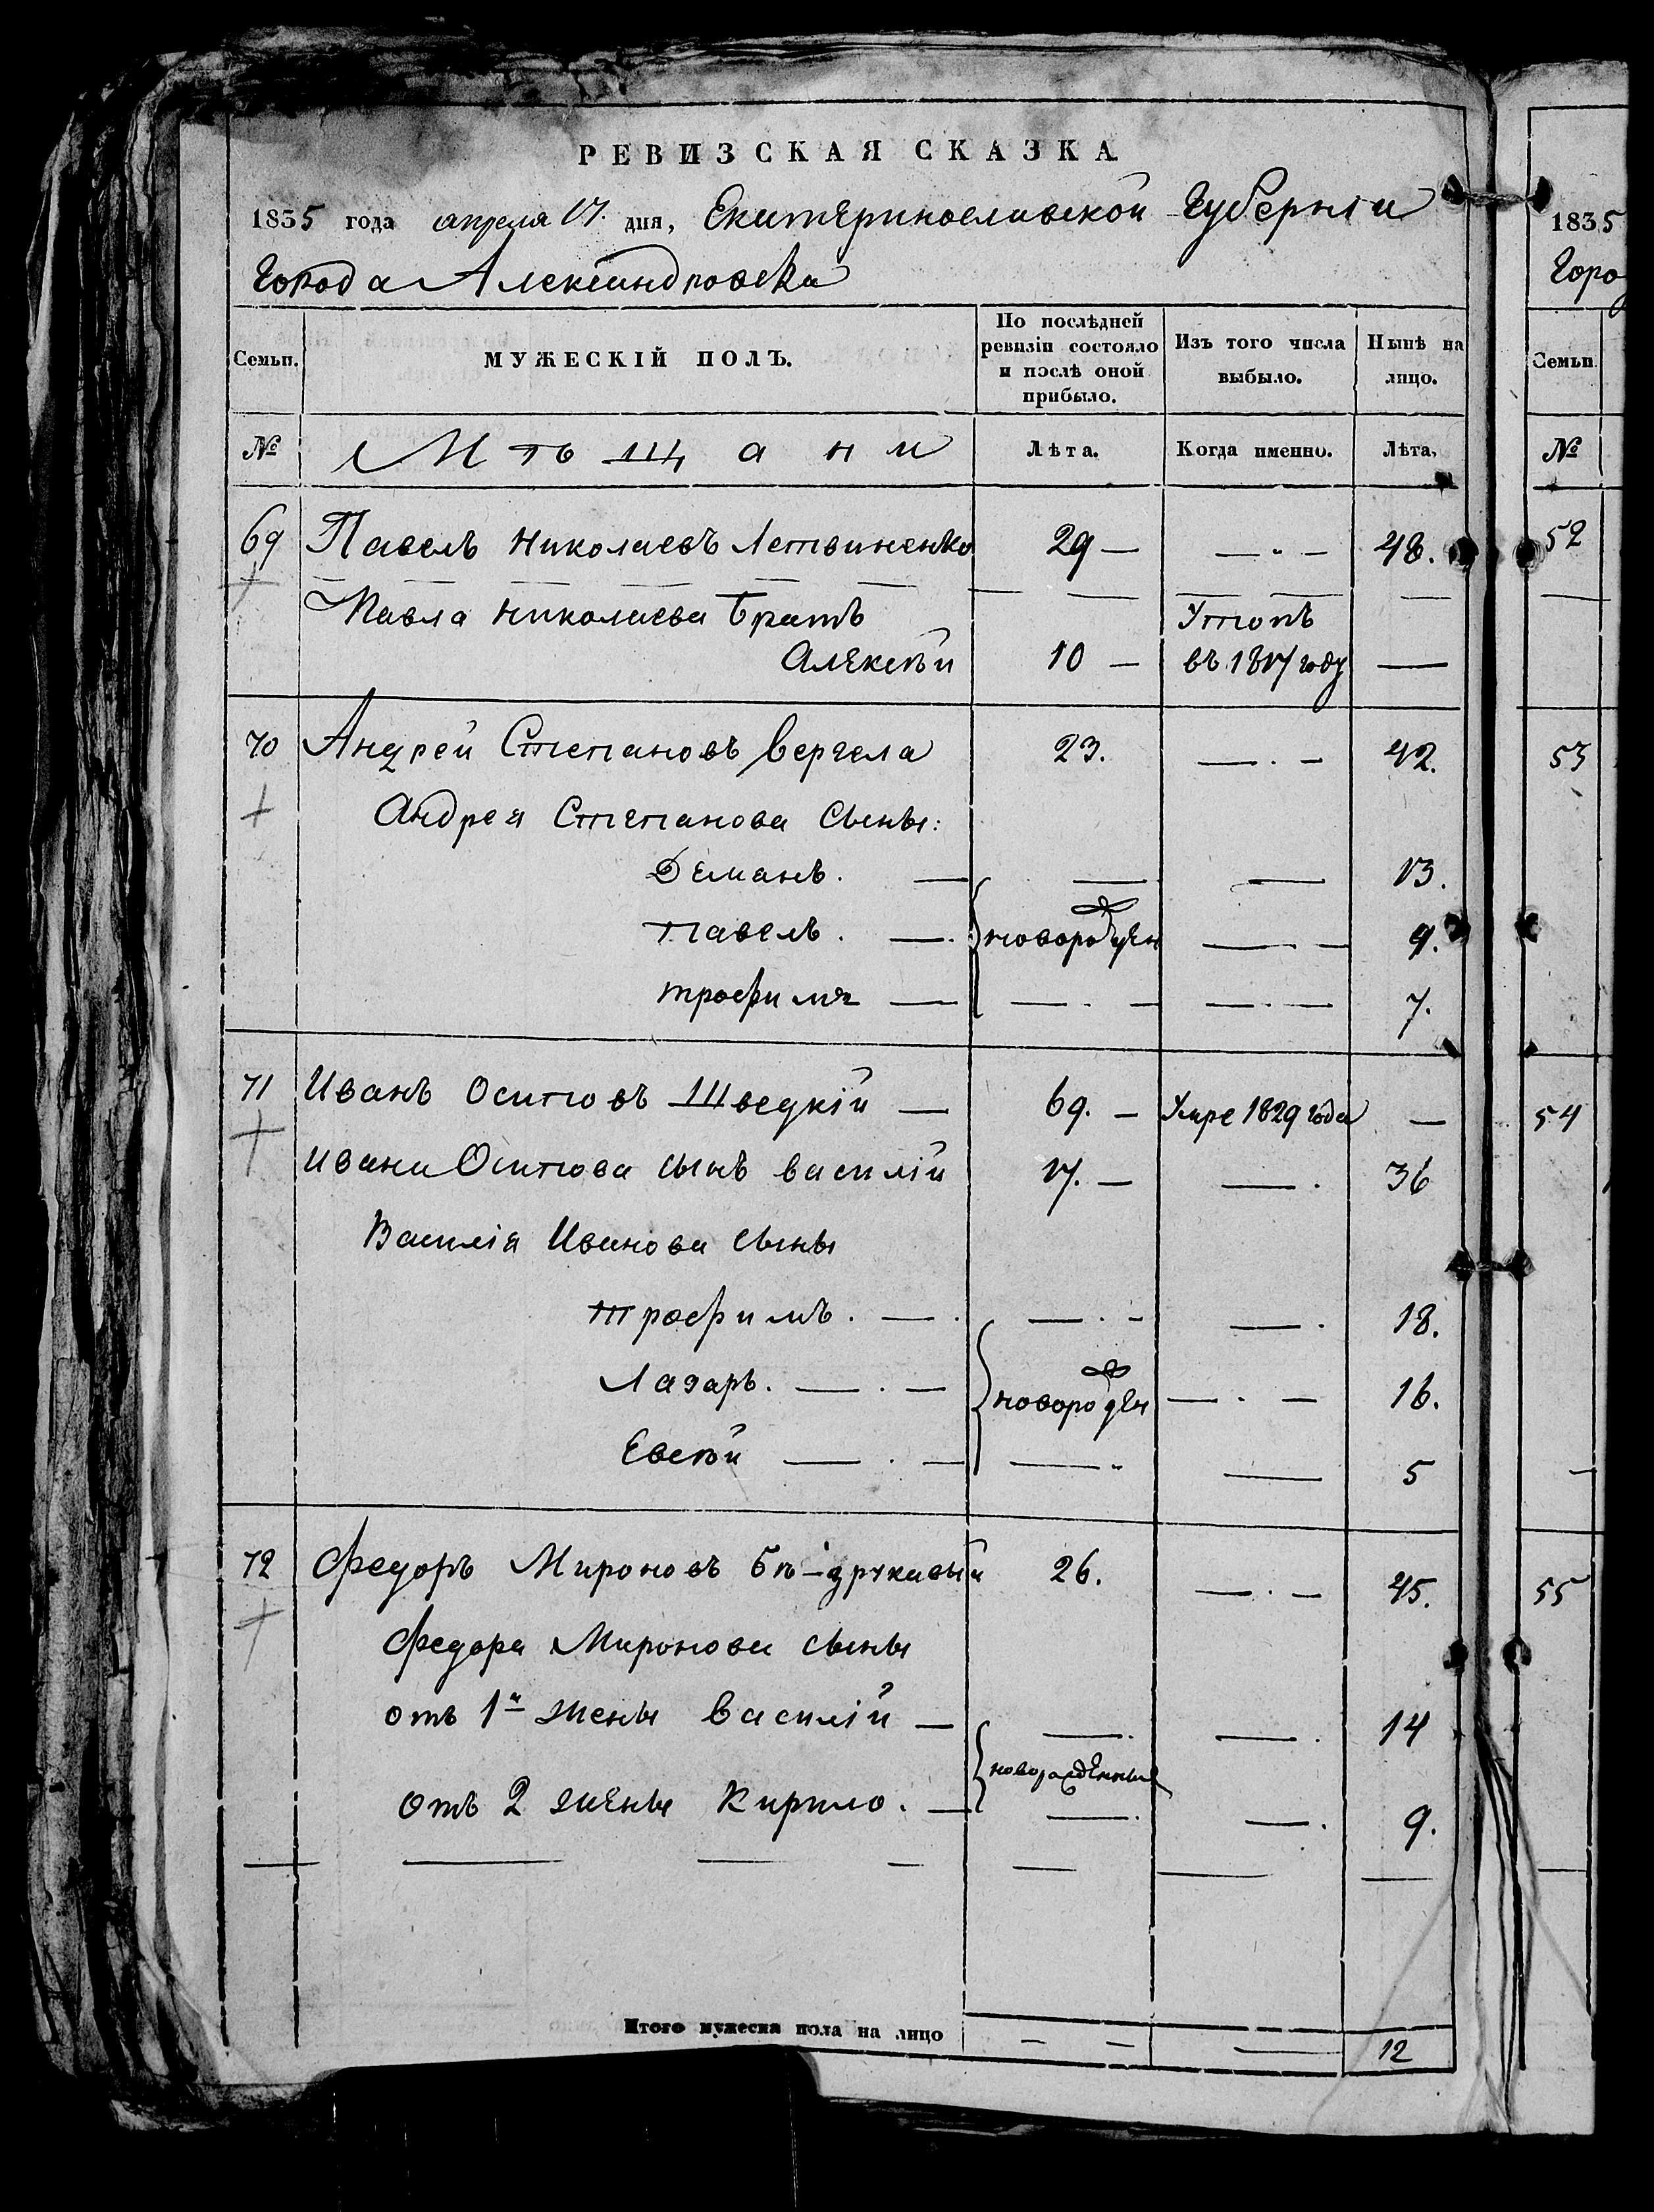 РЕВИЗСКАЯ СКАЗКА
1835 года апреля 17. дня, Екатеринославской Губернiи
Города Александровска
Семьи. МУЖЕСКIЙ ПОЛЪ. По послѣдней ревизiи состояло и послѣ оной прибыло. Изъ того числа выбыло. Нынѣ на лицо.
№ Мѣщани Лѣта. Когда именно. Лѣта.
69 Павелъ Николаевъ Летвиненко 29 — — 48.
Павла Николаева братъ Утопъ
Алексѣй 10 — въ 1817 году —
70 Андрей Степановъ Вергела 23. — 42.
Андрея Степанова сыны:
Деманъ. — — — 13.
Павелъ. — новорожден — 9.
Трофимъ — — — 7.
71 Иванъ Осиповъ Шведкiй — 69. — Умре 1829 года —
Ивана Осипова сынъ Василiй 17. — — 36
Василiя Иванова сыны
Трофимъ. — — — 18.
Лазарь. — новорожден — 16.
Евсѣй — — — 5
72 Федоръ Мироновъ 26. — 45.
Федора Миронова сыны
отъ 1й жены Василiй — — — 14
новорожденныя
отъ 2 жены Кирило. — — — 9.
Итого мужеска пола на лицо — — — 12
1835
Горо
Семьи
№
52
53
54
55